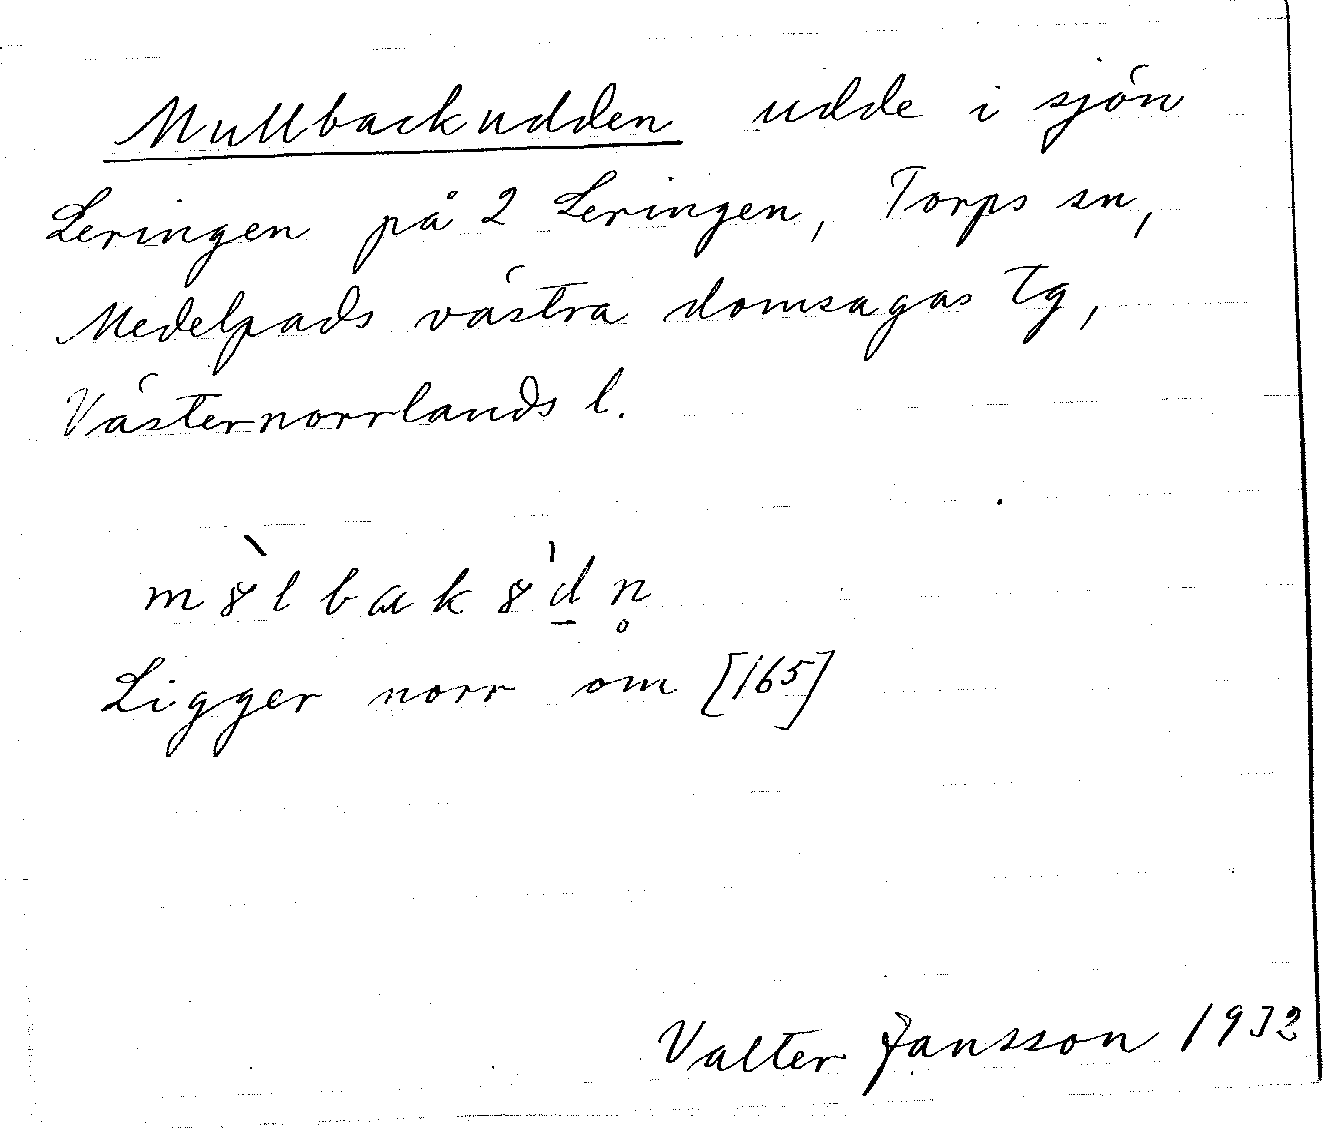 Mullbackudden udde i sjön
Leringen på 2 Leringen, Torps sn,
Medelpads västra domsagas tg,
Västernorrlands l.
Ligger norr om [165]
Valter Jansson 1932